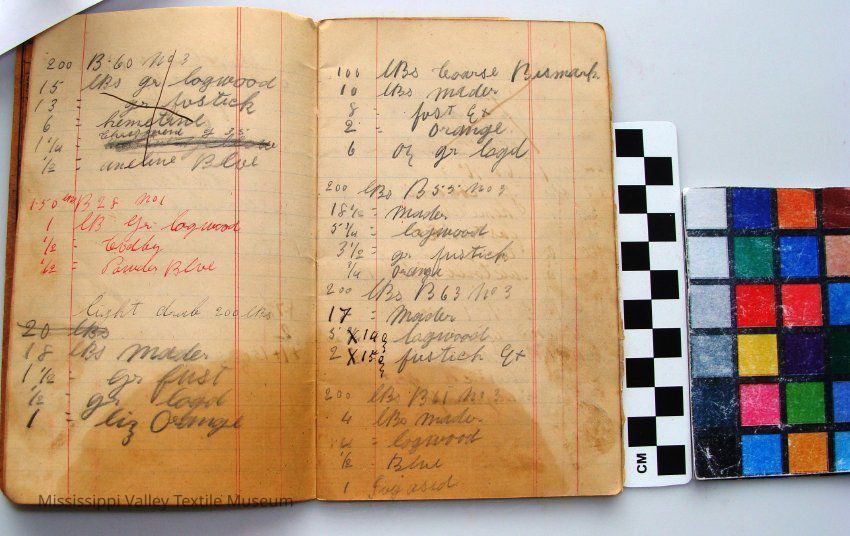 200 B·60 No 3
15 lBs gr logwood
13 = gr fustick
6 = hemetine
1 1/4 =
1/2 = aneline Blve
150 lBs B 28 No 1
1 lB gr logwood
1/2 =
1/2 = Powder Blve
light drab 200 lBs
20 lBs
18 lBs mader
1 1/2 = gr fust
1/2 = gr logd
1 = liz Orange
100 lBs Coarse Bismark
10 lBs mader
8 = fust Ex
2 = Orange
6 oz gr logd
200 lBs B 55 No 3
18 1/2 = Mader
5 1/4 = logwood
3 1/2 = gr fustick
3/4 Orange
200 lBs B 63 No 3
17 = Mader
5 X logwood
2 X fustick Ex
200 lBs B 61 No 3
4 lBs Mader
= logwood
1/2 Blue
1
CM
Mississippi Valley Textile Museum